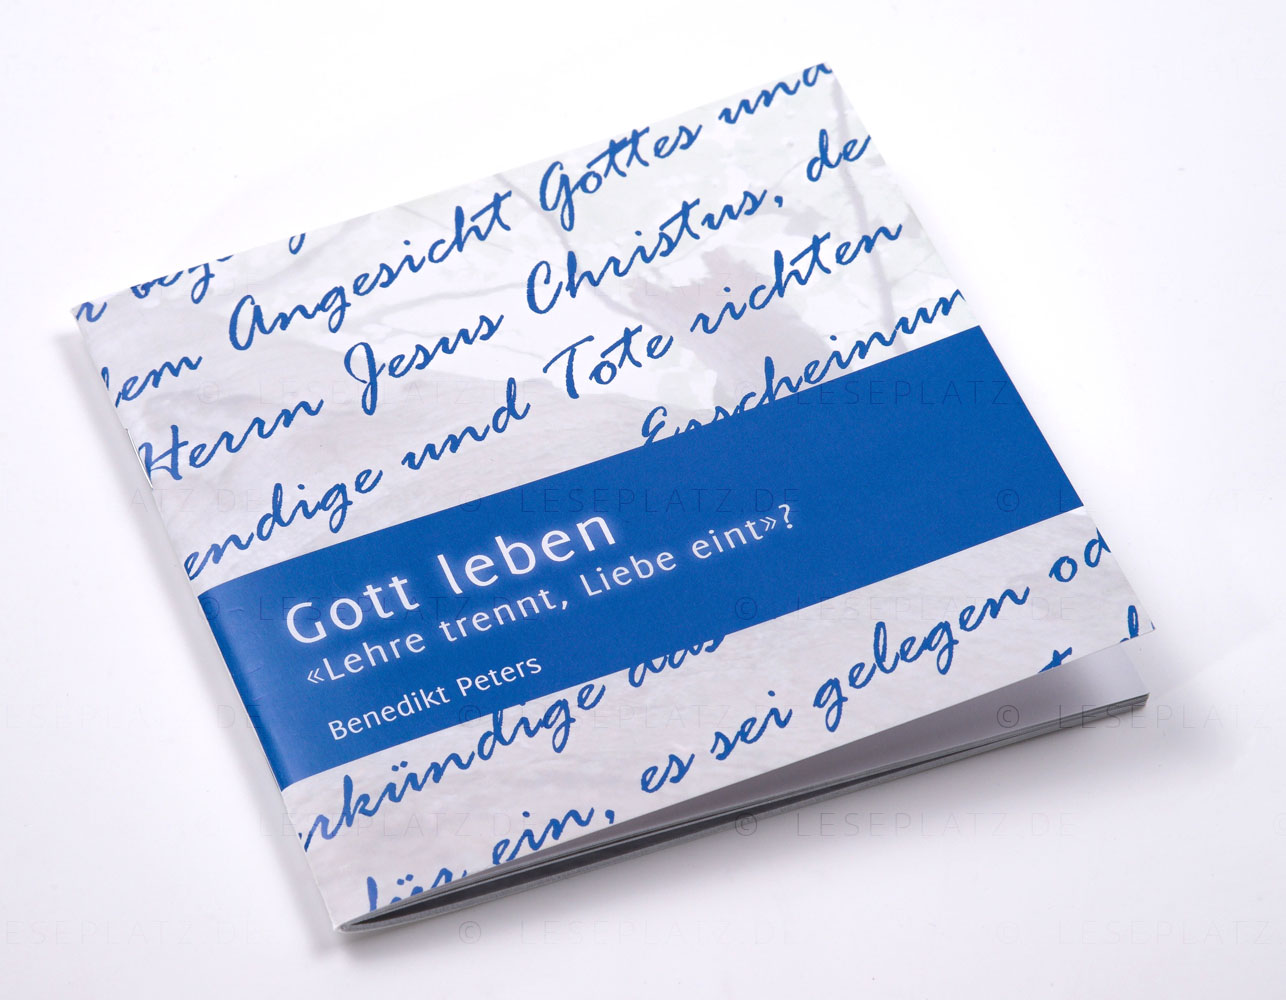 dem Angesicht Gottes und
Herrn Jesus Christus, de
endige und Tote richten
Erscheinun
Gott leben
«Lehre trennt, Liebe eint»?
Benedikt Peters
rkündige das
für ein, es sei gelegen od
© LESEPLATZ.DE